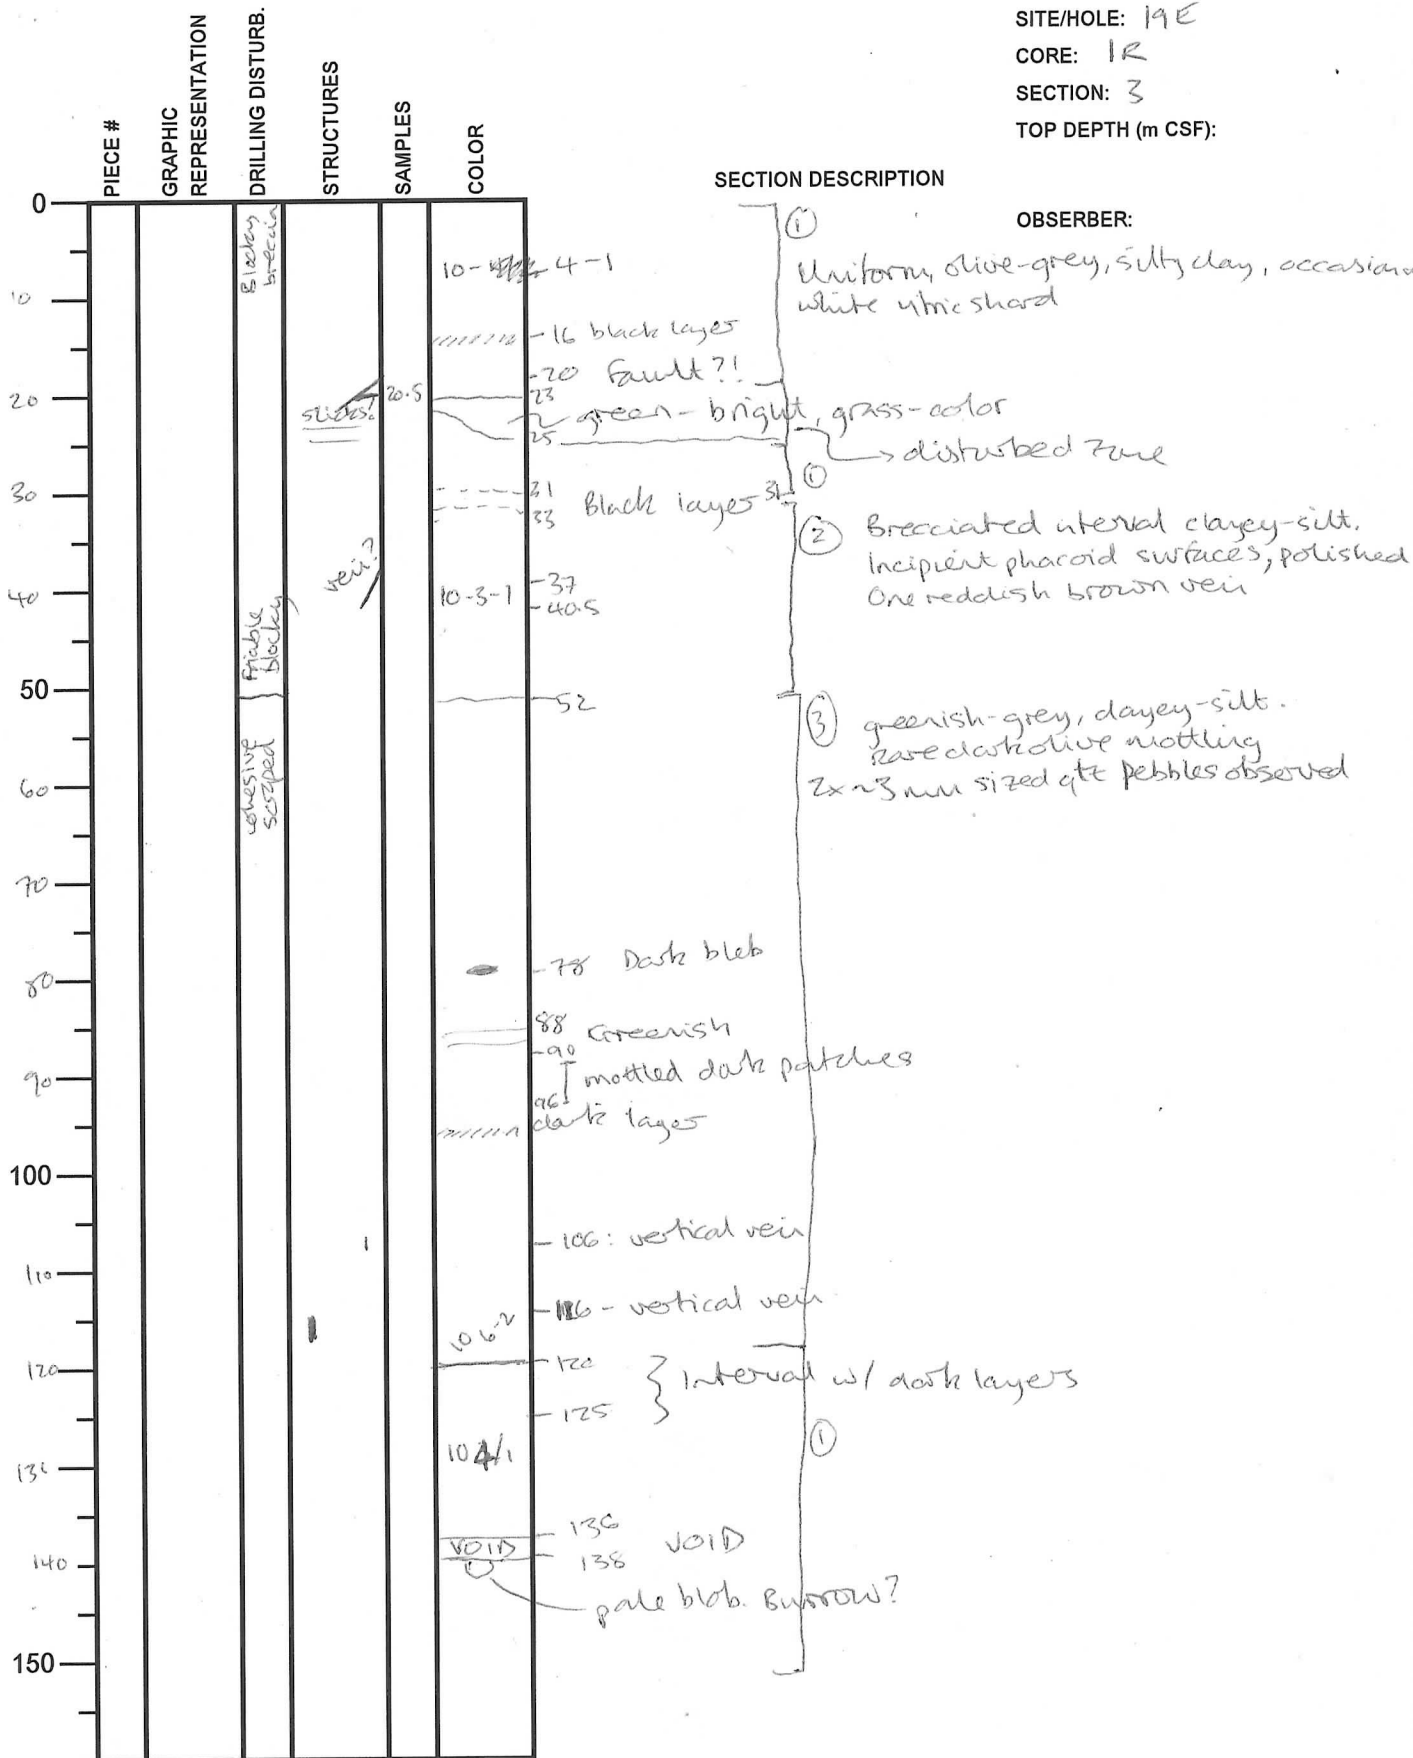 SITE/HOLE: 19E
CORE: 1R
SECTION: 3
TOP DEPTH (m CSF):
PIECE #
GRAPHIC REPRESENTATION
DRILLING DISTURB.
STRUCTURES
SAMPLES
COLOR
SECTION DESCRIPTION
OBSERBER:
0
10
20
30
40
50
60
70
80
90
100
110
120
140
150
Blocky breccia
Friable blocky
cohesive
slicks?
vein?
20.5
10- 4-1
10-3-1
10 6-2
10 4/1
VOID
-16 black layer
-20 Fault?!
23
green - bright, grass-color
25
→ disturbed zone
31
33
Black layer 31
-37
-40.5
52
-78 Dark bleb
88 Greenish
-90
mottled dark patches
96-
dark layer
- 106: vertical vein
-116 - vertical vein
- 120
- 125
} Interval w/ dark layers
136
138
VOID
pale blob. Burrow?
①
Uniform, olive-grey, silty clay, occasiona
white shard
①
② Brecciated interval clayey-silt.
Incipient phacoid surfaces, polished
One reddish brown vein
③ greenish-grey, clayey-silt.
Rare dark olive mottling
2x ~3 mm sized qtz pebbles observed
①